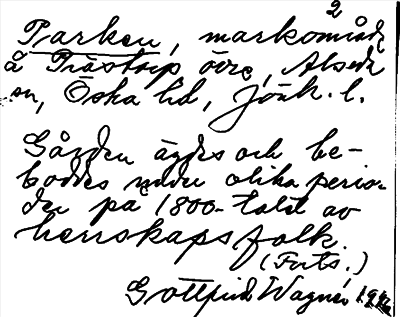 2
Parken, markområde
å Prästorp övre, Alseda
sn, Östra hd, Jönk. l.
Gården ägdes och be-
boddes under olika perio-
der på 1800-talet av
herrskapsfolk.
(Forts.)
Gottfrid Wagner